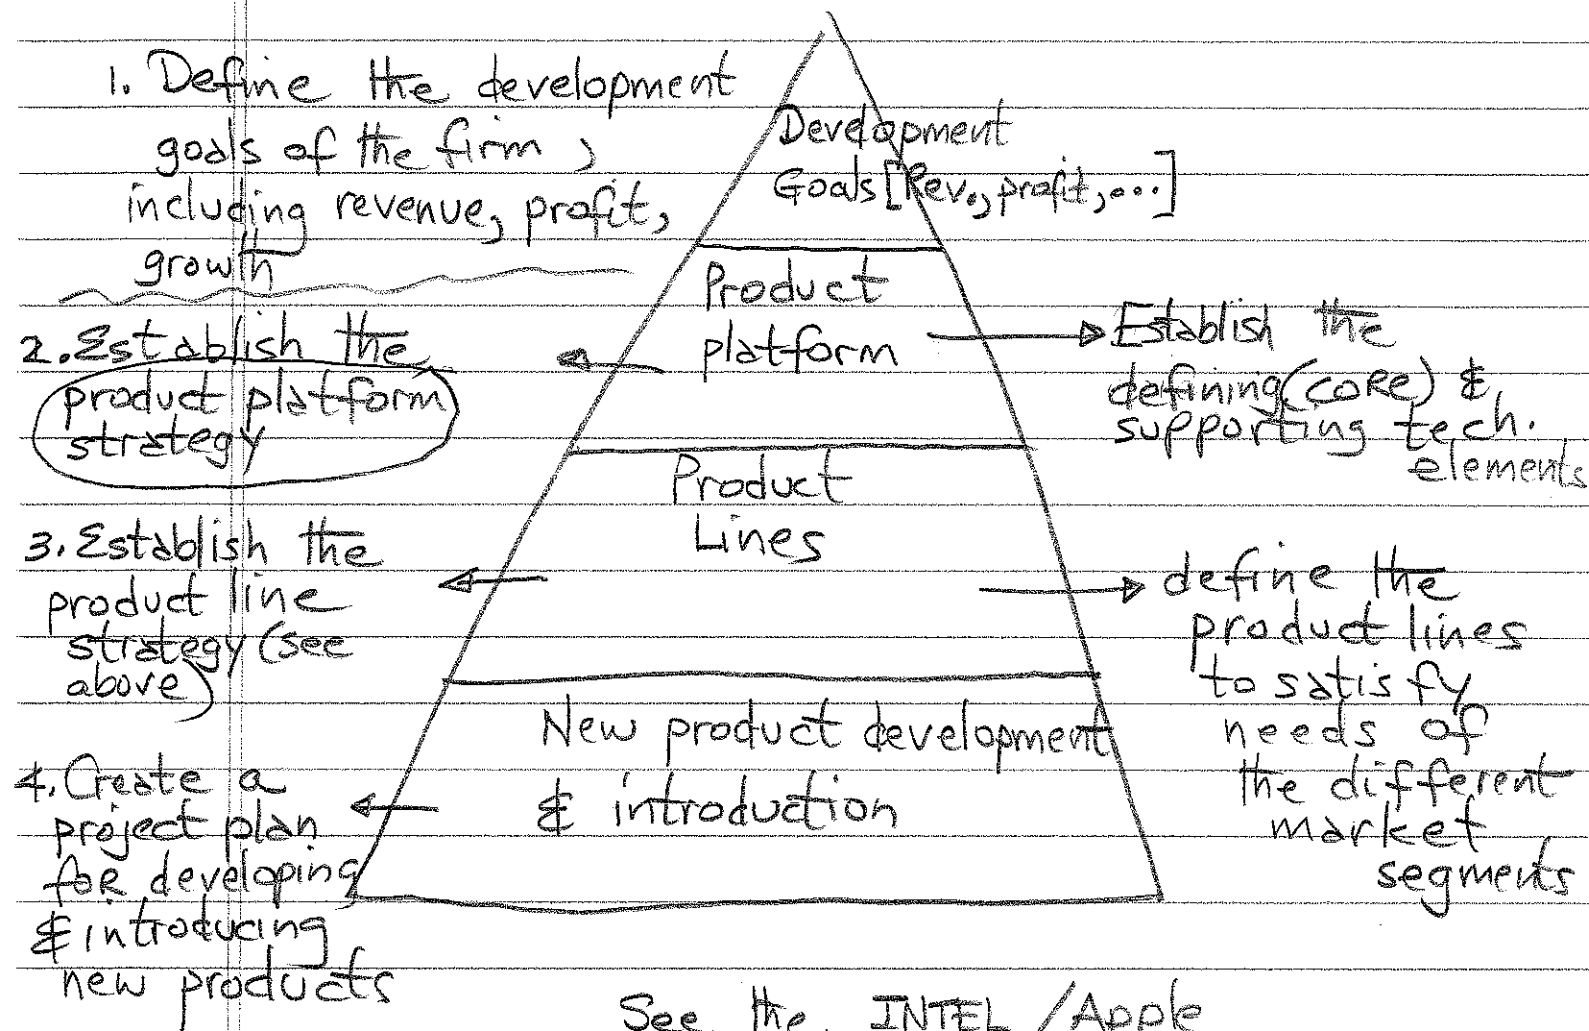 1. Define the development
goals of the firm,
including revenue, profit,
growth
2. Establish the
product platform
strategy
3. Establish the
product line
strategy (see
above)
4. Create a
project plan
for developing
& introducing
new products
Development
Goals [Rev., profit, ...]
Product
platform
Product
Lines
New product development
& introduction
Establish the
defining (CORE) &
supporting tech.
elements
define the
product lines
to satisfy
needs of
the different
market
segments
See the INTEL / Apple